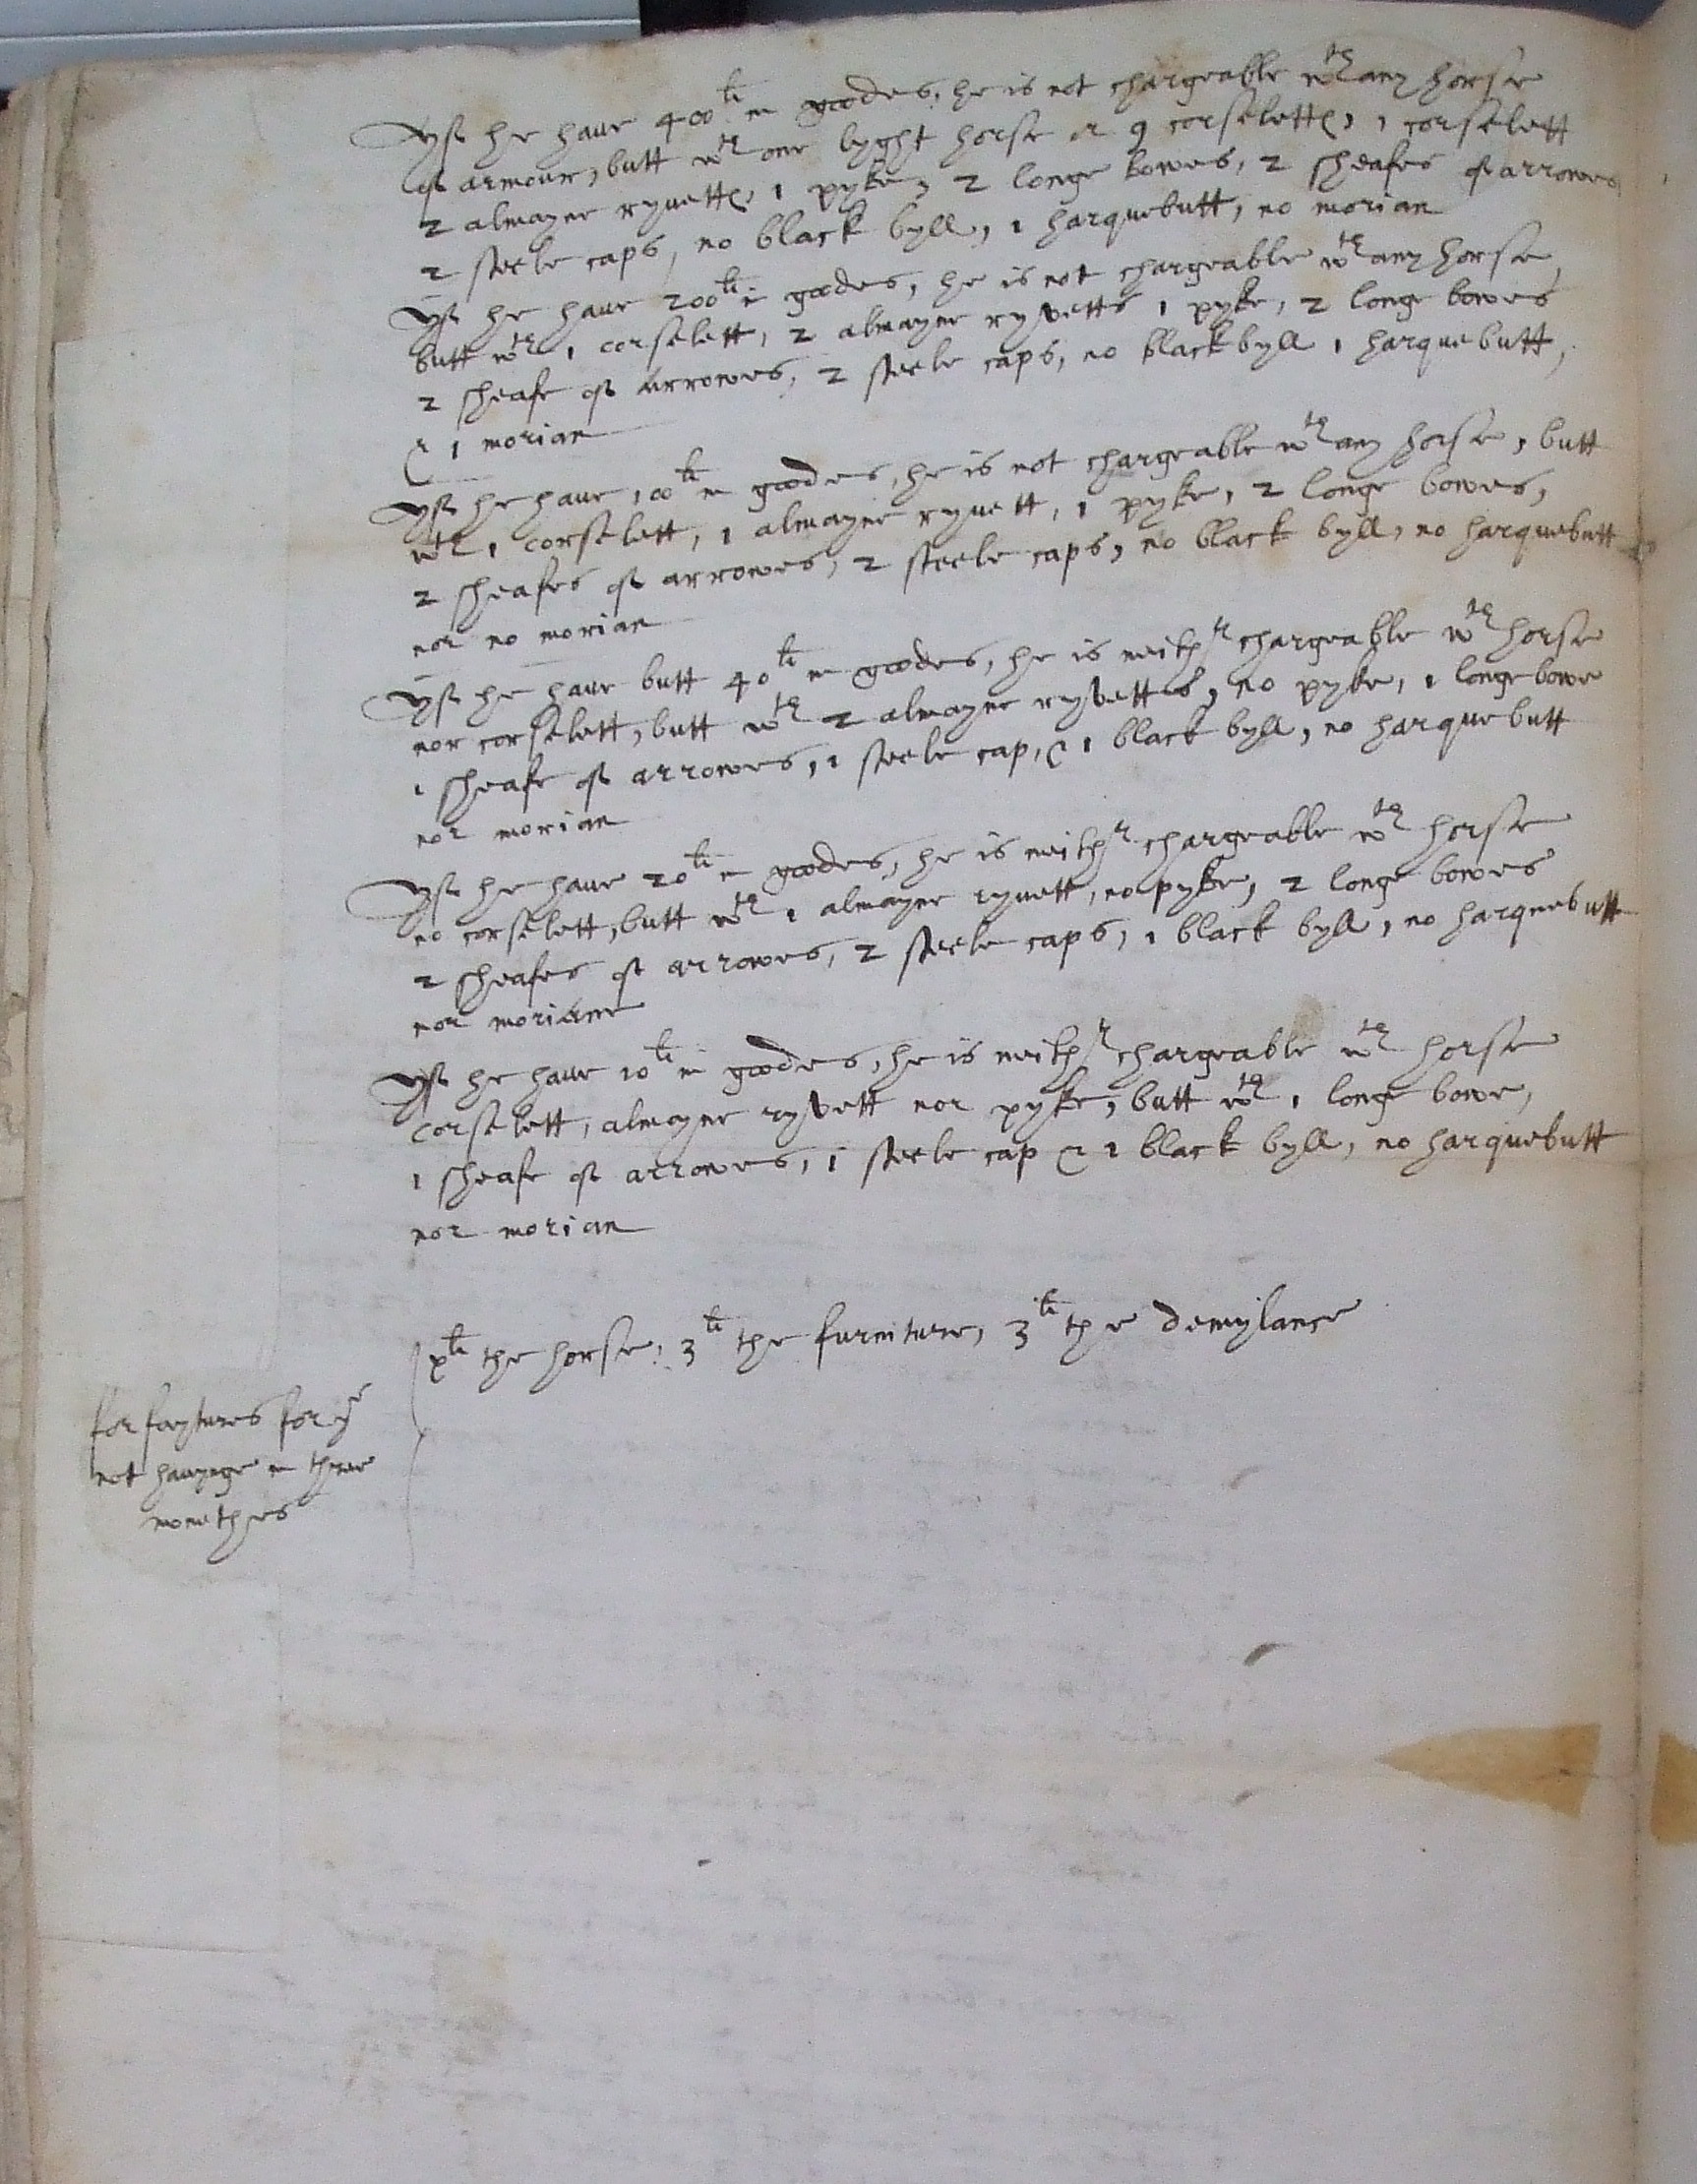 Yf he haue 400li in goodes, he is not chargeable wth any horse
of armour, butt wth one lyght horse or 9 corselettes, 1 corselett
2 almayne ryuettes, 1 pyke, 2 longe bowes, 2 sheafes of arrowes
2 steele caps, no black byll, 1 harquebutt, no morian
Yf he haue 200li in goodes, he is not chargeable wth any horse,
butt wth 1 corselett, 2 almayne ryvetts 1 pyke, 2 longe bowes
2 sheafe of arrowes, 2 steele caps, no black byll 1 harquebutt,
& 1 morian
Yf he haue 100li in goodes, he is not chargeable wth any horse, butt
wth 1 corselett, 1 almayne ryuett, 1 pyke, 2 longe bowes,
2 sheafes of arrowes, 2 steele caps, no black byll, no harquebutt
nor no morian
Yf he haue butt 40li in goodes, he is neithr chargeable wth horse
nor corselett, butt wth 2 almayne ryvettes, no pyke, 1 longe bowe
1 sheafe of arrowes, 1 steele cap, & 1 black byll, no harquebutt
nor morian
Yf he haue 20li in goodes, he is neithr chargeable wth horse
no corselett, butt wth 1 almayne ryuett, no pyke, 2 longe bowes
2 sheafes of arrowes, 2 steele caps, 1 black byll, no harquebutt
nor moriane
Yf he haue 10li in goodes, he is neithr chargeable wth horse
corselett, almayne ryvett nor pyke, butt wth 1 longe bowe,
1 sheafe of arrowes, 1 steele cap & 1 black byll, no harquebutt
nor morian
xli the horse, 3li the furniture, 3li the demylance
forfaytures for ye
not hauynge in three
monethes